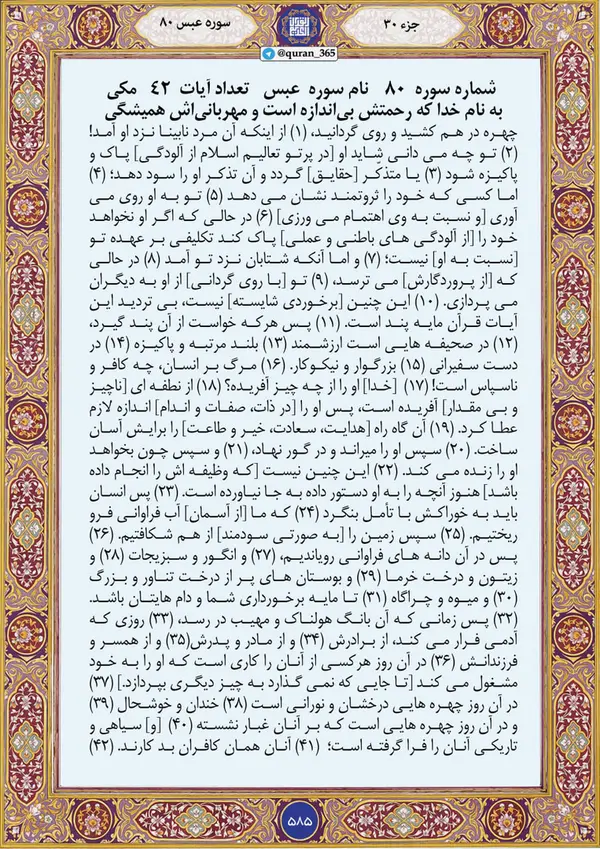 جزء ۳۰
سوره عبس ۸۰
@quran_365
شماره سوره ۸۰ نام سوره عبس تعداد آیات ۴۲ مکی
به نام خدا که رحمتش بی‌اندازه است و مهربانی‌اش همیشگی
چهره در هم کشید و روی گردانید، (۱) از اینکه آن مرد نابینا نزد او آمد!
(۲) تو چه می دانی شاید او [در پرتو تعالیم اسلام از آلودگی] پاک و
پاکیزه شود (۳) یا متذکّر [حقایق] گردد و آن تذکر او را سود دهد؛ (۴)
اما کسی که خود را ثروتمند نشان می دهد (۵) تو به او روی می
آوری [و نسبت به وی اهتمام می ورزی] (۶) در حالی که اگر او نخواهد
خود را [از آلودگی های باطنی و عملی] پاک کند تکلیفی بر عهده تو
[نسبت به او] نیست؛ (۷) و اما آنکه شتابان نزد تو آمد (۸) در حالی
که [از پروردگارش] می ترسد، (۹) تو [با روی گردانی] از او به دیگران
می پردازی. (۱۰) این چنین [برخوردی شایسته] نیست، بی تردید این
آیات قرآن مایه پند است. (۱۱) پس هرکه خواست از آن پند گیرد،
(۱۲) در صحیفه هایی است ارزشمند (۱۳) بلند مرتبه و پاکیزه (۱۴) در
دست سفیرانی (۱۵) بزرگوار و نیکوکار. (۱۶) مرگ بر انسان، چه کافر و
ناسپاس است! (۱۷) [خدا] او را از چه چیز آفریده؟ (۱۸) از نطفه ای [ناچیز
و بی مقدار] آفریده است، پس او را [در ذات، صفات و اندام] اندازه لازم
عطا کرد. (۱۹) آن گاه راه [هدایت، سعادت، خیر و طاعت] را برایش آسان
ساخت. (۲۰) سپس او را میراند و در گور نهاد، (۲۱) و سپس چون بخواهد
او را زنده می کند. (۲۲) این چنین نیست [که وظیفه اش را انجام داده
باشد] هنوز آنچه را به او دستور داده به جا نیاورده است. (۲۳) پس انسان
باید به خوراکش با تأمل بنگرد (۲۴) که ما [از آسمان] آب فراوانی فرو
ریختیم. (۲۵) سپس زمین را [به صورتی سودمند] از هم شکافتیم. (۲۶)
پس در آن دانه های فراوانی رویاندیم، (۲۷) و انگور و سبزیجات (۲۸) و
زیتون و درخت خرما (۲۹) و بوستان های پر از درخت تناور و بزرگ
(۳۰) و میوه و چراگاه (۳۱) تا مایه برخورداری شما و دام هایتان باشد.
(۳۲) پس زمانی که آن بانگ هولناک و مهیب در رسد، (۳۳) روزی که
آدمی فرار می کند، از برادرش (۳۴) و از مادر و پدرش(۳۵) و از همسر و
فرزندانش (۳۶) در آن روز هرکسی از آنان را کاری است که او را به خود
مشغول می کند [تا جایی که نمی گذارد به چیز دیگری بپردازد.] (۳۷)
در آن روز چهره هایی درخشان و نورانی است (۳۸) خندان و خوشحال (۳۹)
و در آن روز چهره هایی است که بر آنان غبار نشسته (۴۰) [و] سیاهی و
تاریکی آنان را فرا گرفته است؛ (۴۱) آنان همان کافران بد کارند. (۴۲)
۵۸۵